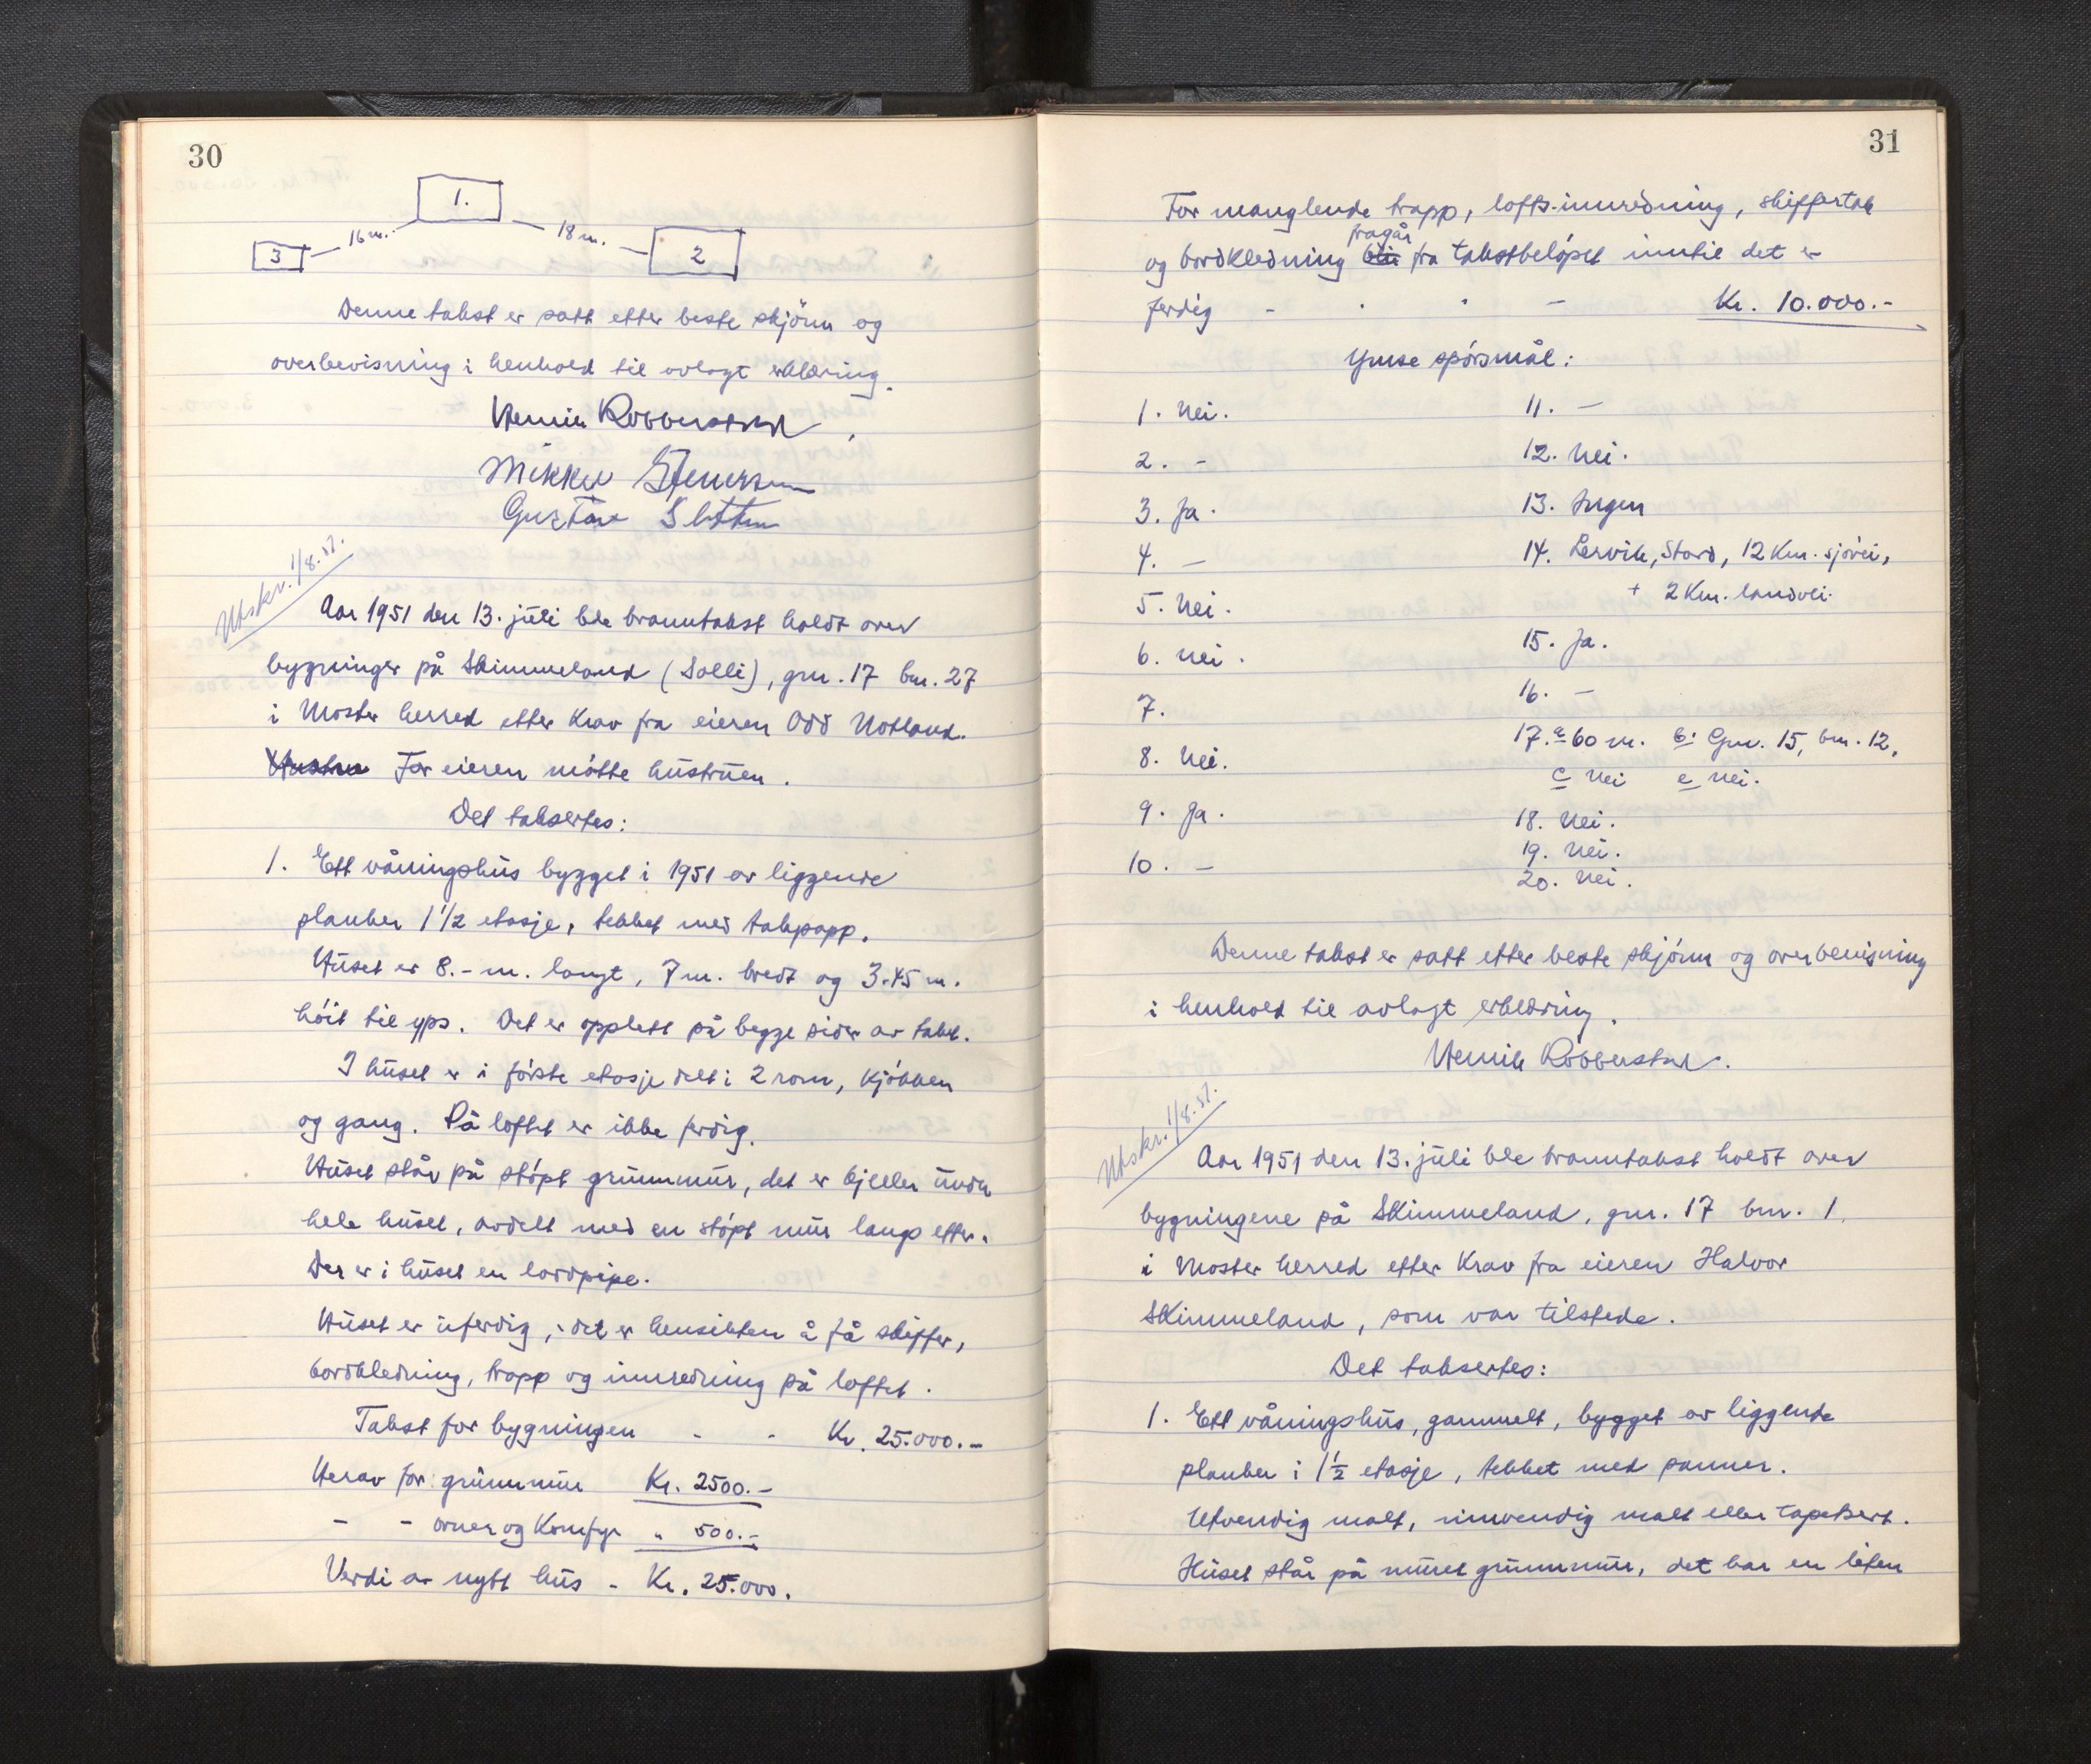 30
1.
16 m.
18 m.
3
2
Denne takst er satt etter beste skjönn og
overbevisning i henhold til avlagt erklæring.
Henrik Robberstad,
Mikkel
Gustav
Utskr. 1/8.51.
Aar 1951 den 13. juli ble branntakst holdt over
bygninger på Skimmeland (Solli), gnr. 17 bnr. 27
i Moster herred etter krav fra eieren Odd Notland.
Hustru For eieren møtte hustruen.
Det taksertes:
1. Ett våningshus bygget i 1951 av liggende
planker 1 1/2 etasje, tekket med takpapp.
Huset er 8.- m. langt, 7 m. bredt og 3.45 m.
höit til gps. Det er opplett på begge sider av taket.
I huset er i förste etasje delt i 2 rom, kjökken
og gang. På loftet er ikke ferdig.
Huset står på stöpt grunnmur, det er kjeller under
hele huset, avdelt med en stöpt mur langs etter.
Der er i huset en lovpipe.
Huset er uferdig, det er hensikten å få skiffer,
bordkledning, trapp og innredning på loftet.
Takst for bygningen - - Kr. 25.000.-
Herav for grunnmur Kr. 2500.-
- - ovner og komfyr " 500.-
Verdi av nytt hus - Kr. 25.000.
31
For manglende trapp, lofts-innredning, skiffertak
fragår
og bordkledning blir fra takstbelöpet inntil det er
ferdig - - - - Kr. 10.000.-
Ymse spörsmål:
1. Nei.
2. -
3. Ja.
4. -
5. Nei.
6. Nei.
7.
8. Nei.
9. Ja.
10. -
11. -
12. Nei.
13. Ingen
14. Lervik, Stord, 12 Km. sjövei,
+ 2 Km. landvei.
15. Ja.
16. -
17. a 60 m. b. Gnr. 15, bnr. 12,
c Nei e Nei.
18. Nei.
19. Nei.
20. Nei.
Denne takst er satt etter beste skjönn og overbevisning
i henhold til avlagt erklæring.
Henrik Robberstad.
Utskr. 1/8.51.
Aar 1951 den 13. juli ble branntakst holdt over
bygningene på Skimmeland, gnr. 17 bnr. 1.
i Moster herred etter krav fra eieren Halvor
Skimmeland, som var tilstede.
Det taksertes:
1. Ett våningshus, gammelt, bygget av liggende
planker i 1 1/2 etasje, tekket med panner.
Utvendig malt, innvendig malt eller tapetsert.
Huset står på muret grunnmur, det har en liten